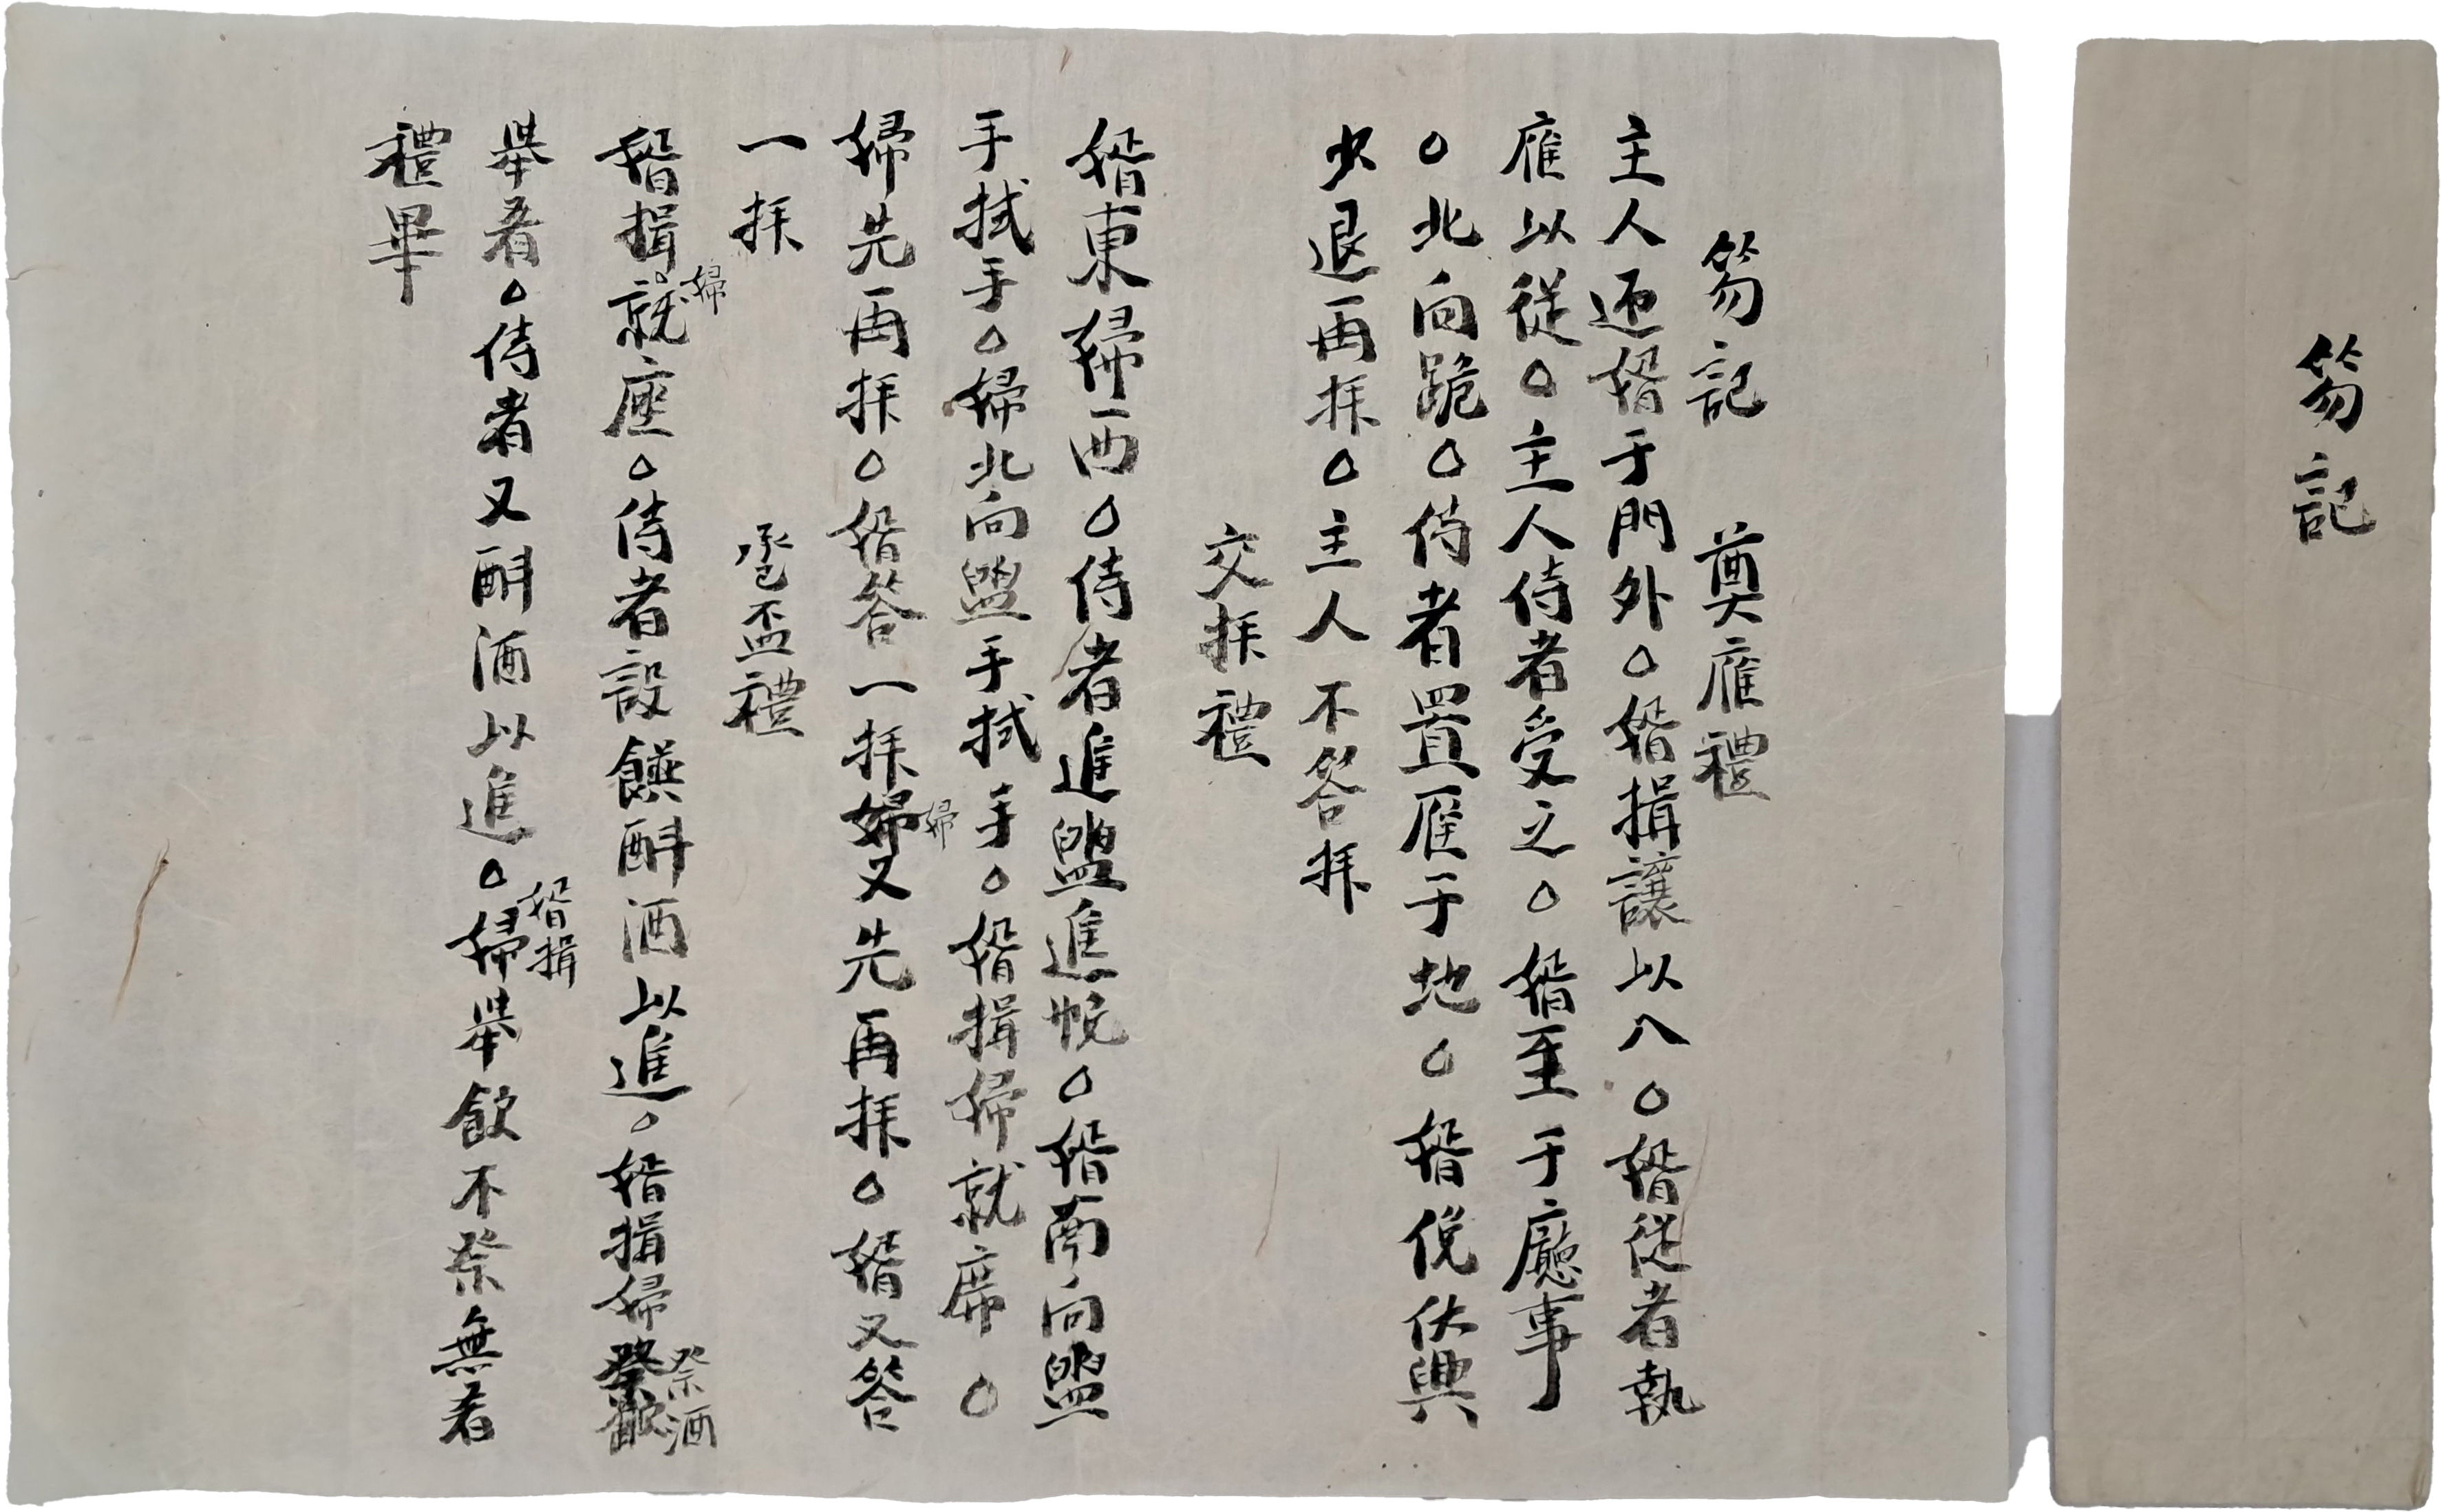 笏記
笏記　奠雁禮
主人迎婿于門外○婿揖讓以入○婿從者執
雁以從○主人侍者受之○婿至于廳事
○北向跪○侍者置雁于地○婿俛伏興
少退再拜○主人不答拜
交拜禮
婿東婦西○侍者進盥進帨○婿南向盥
手拭手○婦北向盥手拭手○婿揖婦就席○
婦先再拜○婿答一拜婦又先再拜○婿又答
婦
一拜
巹盃禮
婿揖就座○侍者設饌酙酒以進○婿揖婦祭
婦
祭酒
舉肴○侍者又酙酒以進○婦舉飮不祭無肴
婿揖
禮畢